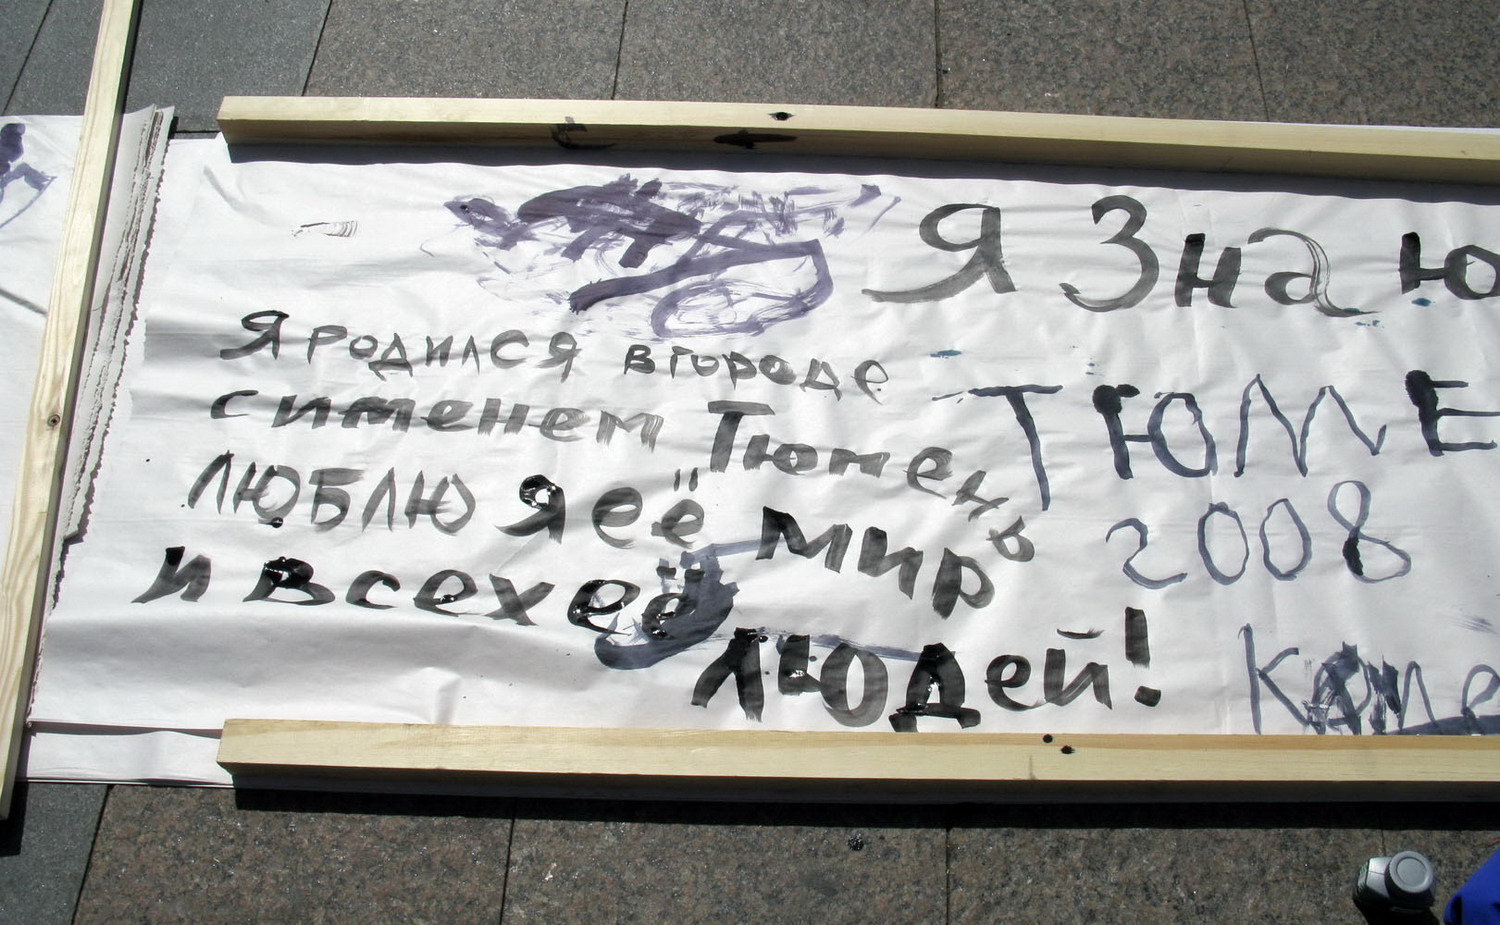 Я родился в городе
с именем Тюмень
люблю я её мир
и всех её
людей!
Я Знаю
ТЮМЕ
2008